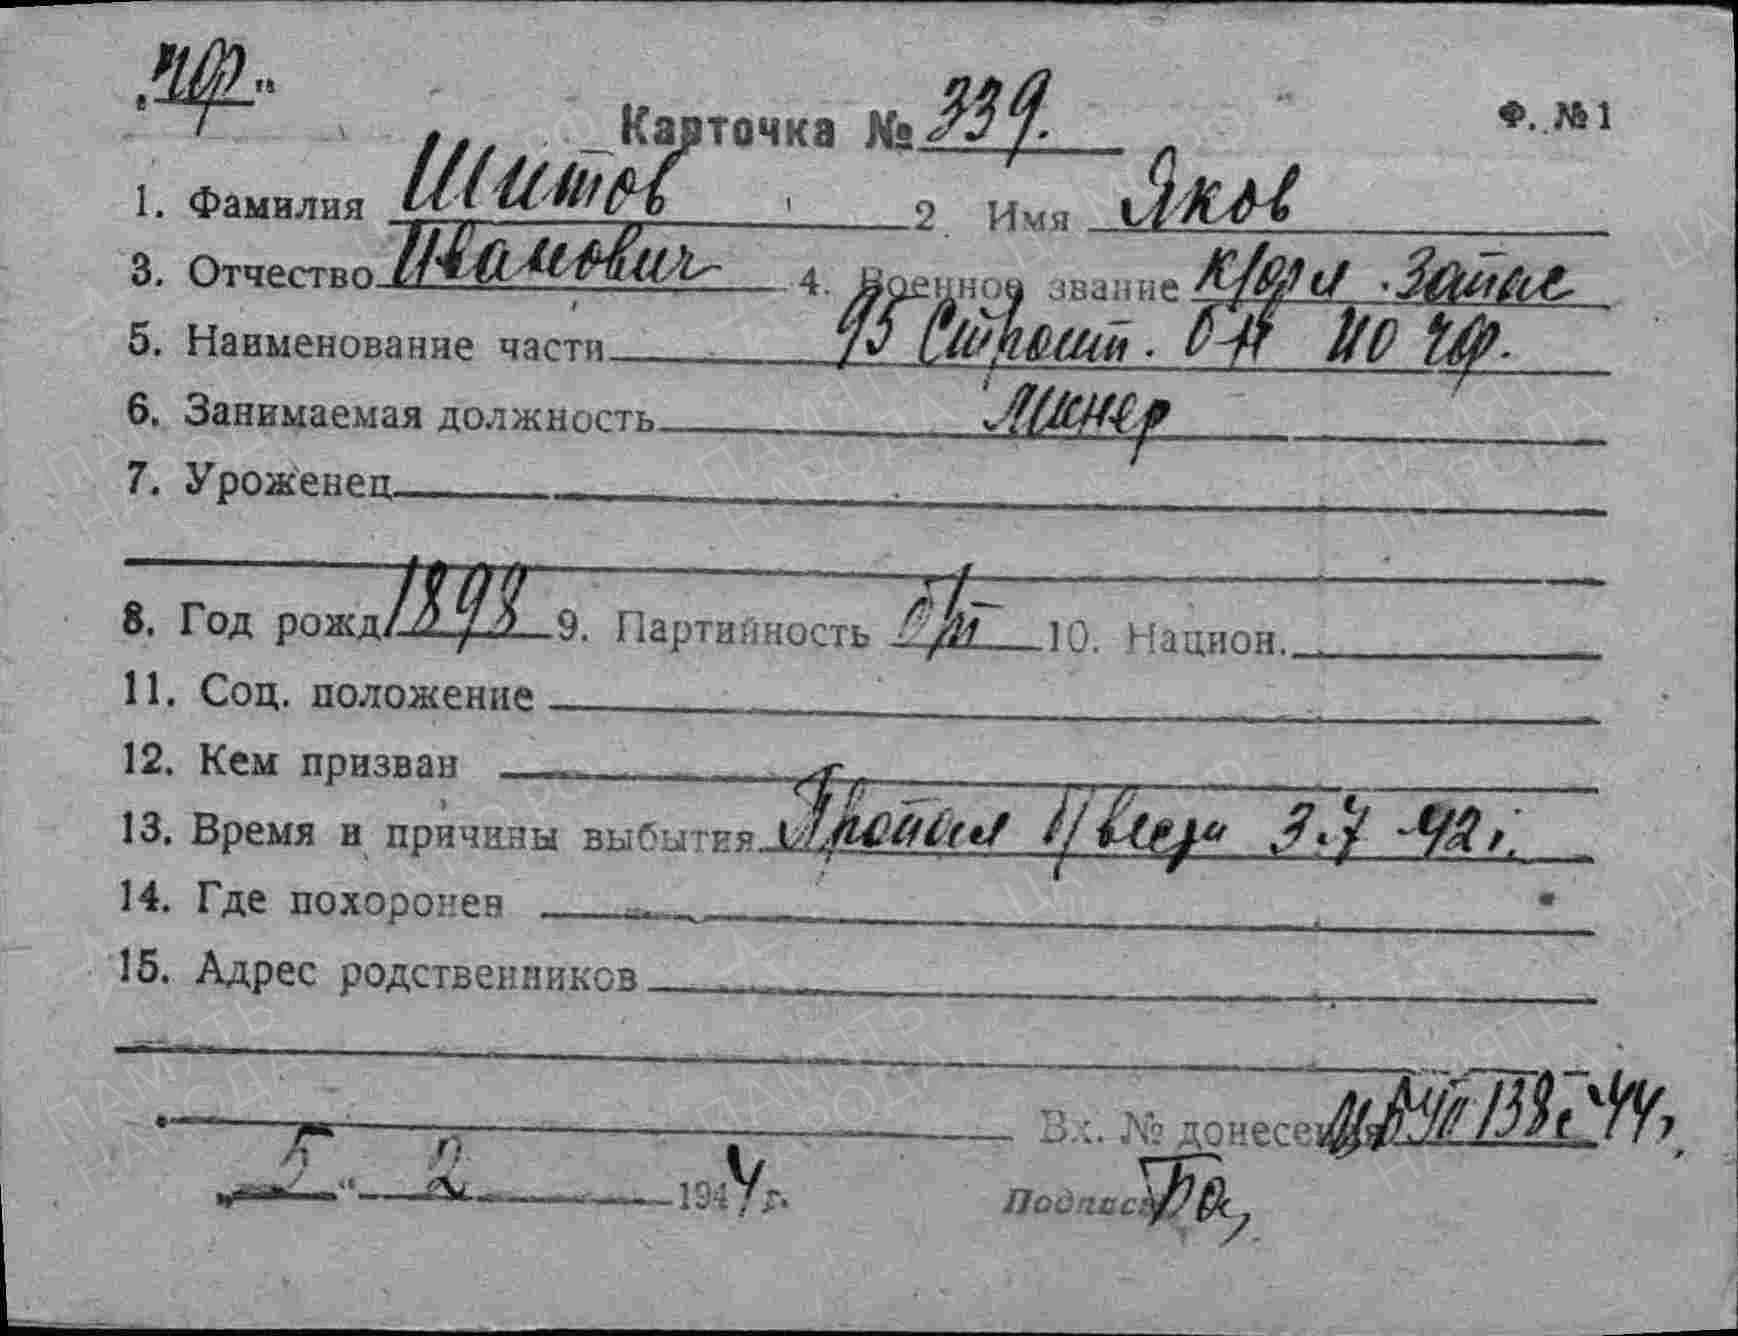 „ЧФ"
Карточка № 339. Ф. №1
1. Фамилия Шитов 2 Имя Яков
3. Отчество Иванович 4. Военное звание К/фл. Запас
5. Наименование части 95 Строит. б-н ИО ЧФ.
6. Занимаемая должность Минер
7. Уроженец
8. Год рожд. 1898 9. Партийность б/п 10. Национ.
11. Соц. положение
12. Кем призван
13. Время и причины выбытия Пропал б/вести 3.7-42 г.
14. Где похоронен
15. Адрес родственников
Вх. № донесения 138с 44г.
„5" 2 1944 г. Подпись
ПАМЯТЬ НАРОДА